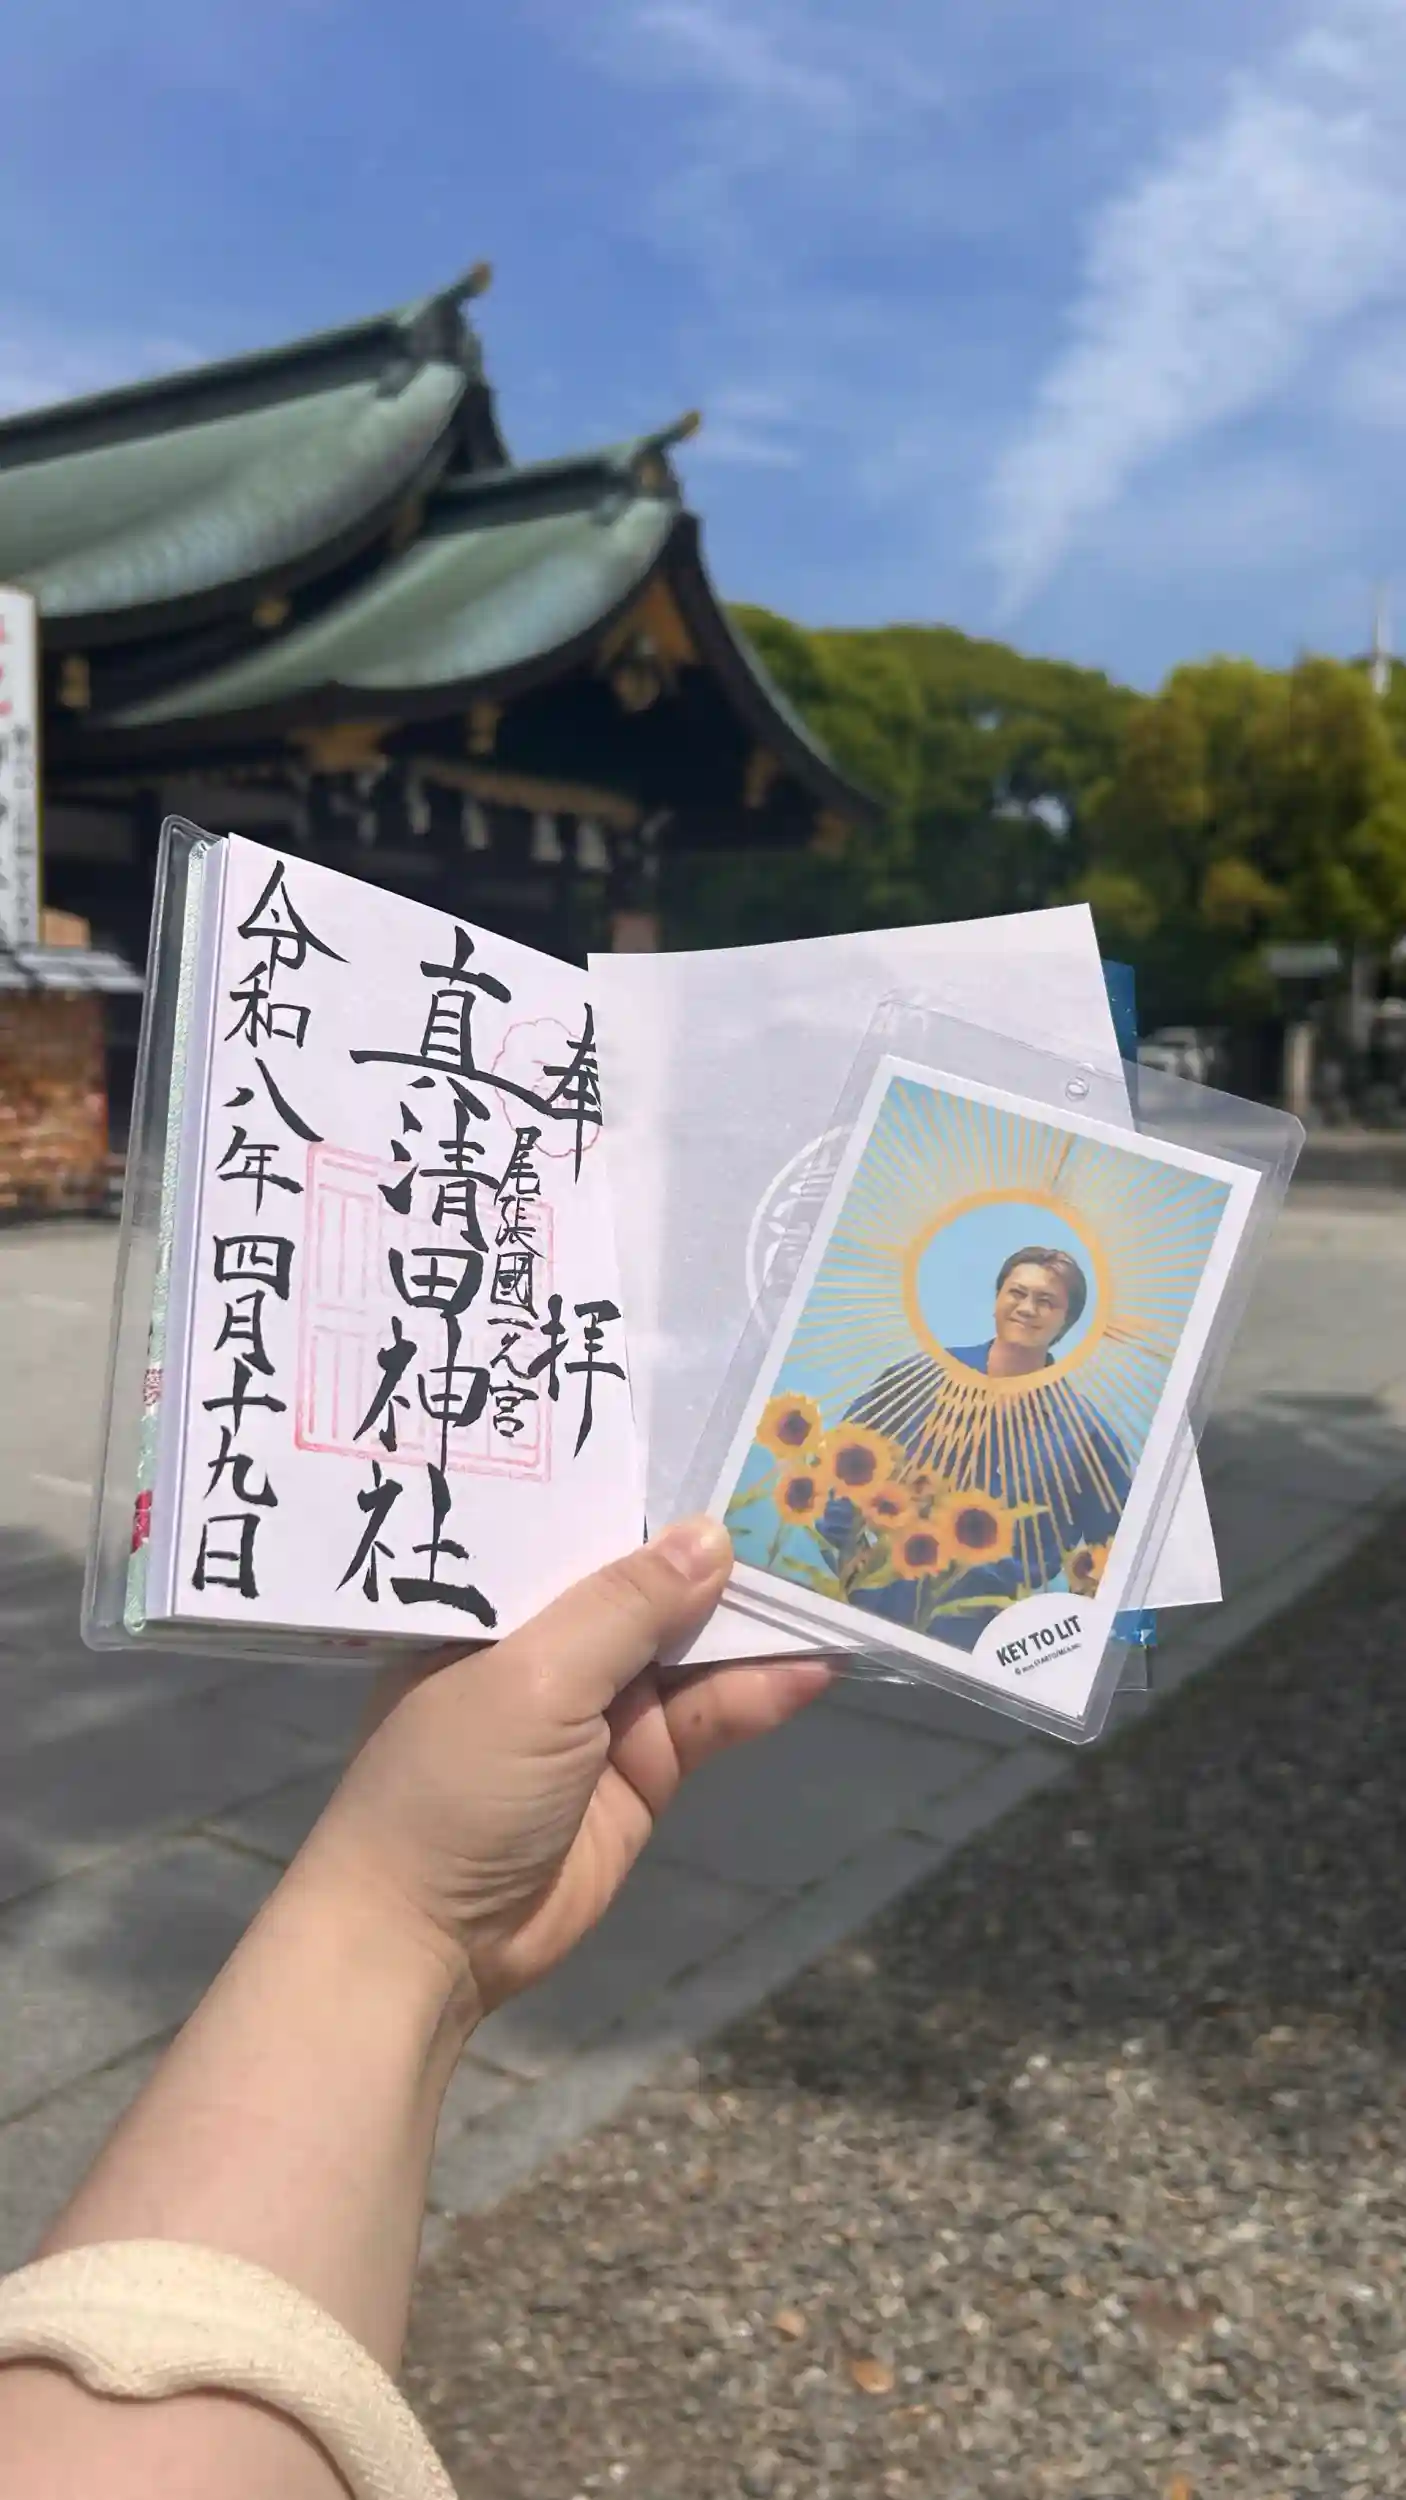 奉拝
尾張國一之宮
真清田神社
令和八年四月十九日
KEY TO LIT